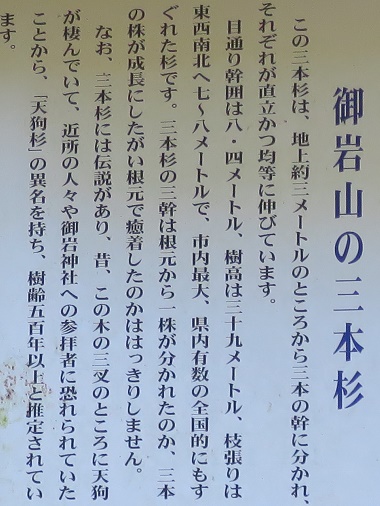 御岩山の三本杉
この三本杉は、地上約三メートルのところから三本の幹に分かれ、
それぞれが直立かつ均等に伸びています。
目通り幹囲は八・四メートル、樹高は三十九メートル、枝張りは
東西南北へ七~八メートルで、市内最大、県内有数の全国的にもす
ぐれた杉です。三本杉の三幹は根元から一株が分かれたのか、三本
の株が成長にしたがい根元で癒着したのかはっきりしません。
なお、三本杉には伝説があり、昔、この木の三叉のところに天狗
が棲んでいて、近所の人々や御岩神社への参拝者に恐れられていた
ことから、「天狗杉」の異名を持ち、樹齢五百年以上と推定されてい
ます。